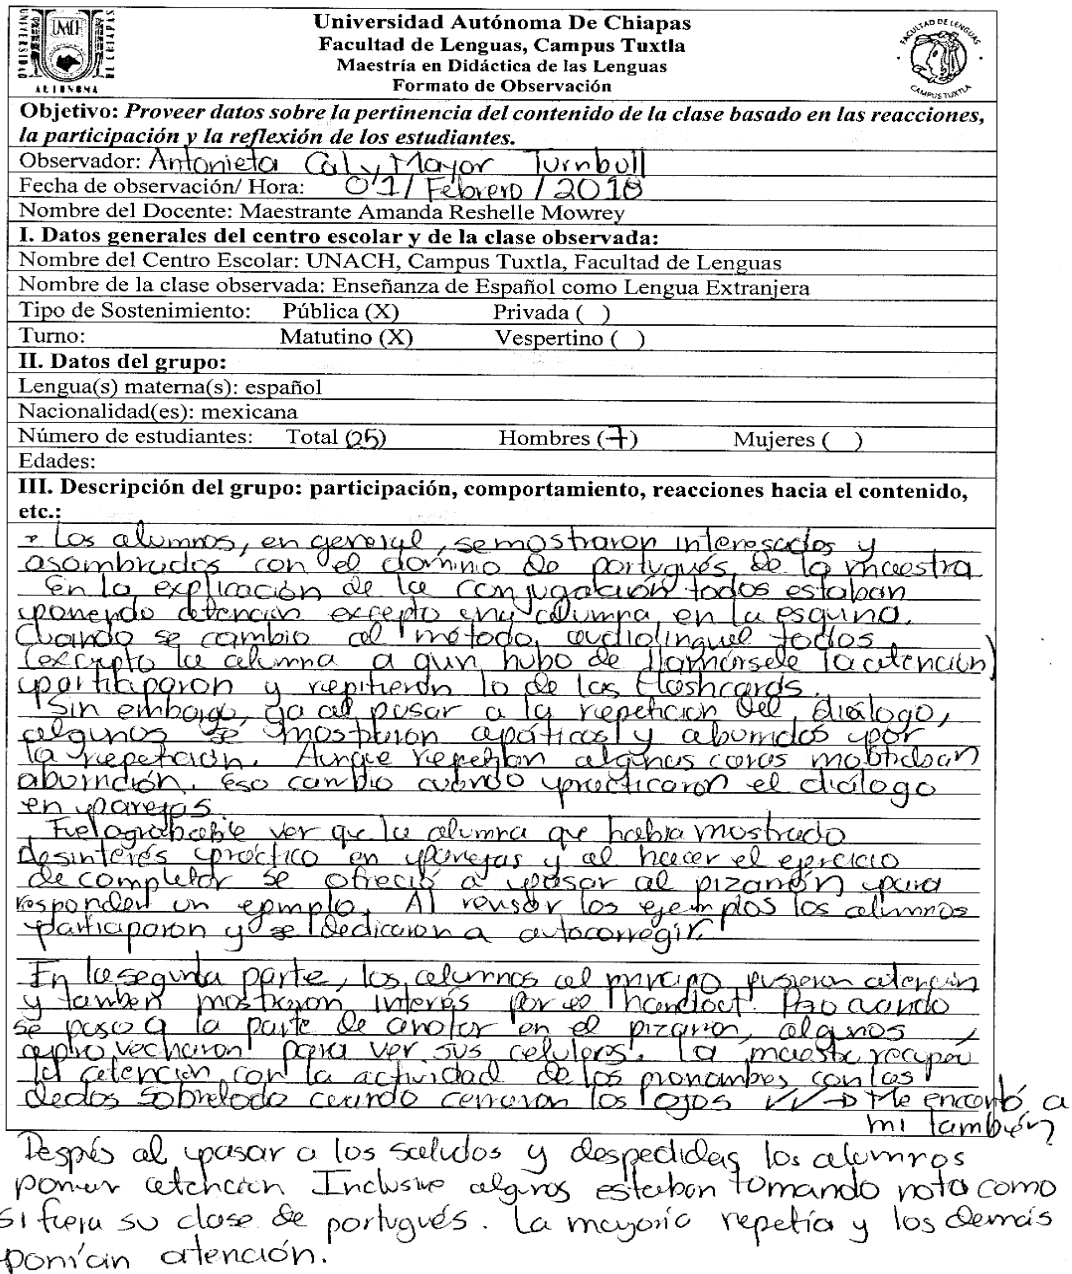 Universidad Autónoma De Chiapas
Facultad de Lenguas, Campus Tuxtla
Maestría en Didáctica de las Lenguas
Formato de Observación
UNIVERSIDAD
UNACH
AUTONOMA
FACULTAD DE LENGUAS
CAMPUS TUXTLA
Objetivo: Proveer datos sobre la pertinencia del contenido de la clase basado en las reacciones,
la participación y la reflexión de los estudiantes.
Observador: Antonieta Cal y Mayor Turnbull
Fecha de observación/ Hora: 01/Febrero/2018
Nombre del Docente: Maestrante Amanda Reshelle Mowrey
I. Datos generales del centro escolar y de la clase observada:
Nombre del Centro Escolar: UNACH, Campus Tuxtla, Facultad de Lenguas
Nombre de la clase observada: Enseñanza de Español como Lengua Extranjera
Tipo de Sostenimiento: Pública (X) Privada ( )
Turno: Matutino (X) Vespertino ( )
II. Datos del grupo:
Lengua(s) materna(s): español
Nacionalidad(es): mexicana
Número de estudiantes: Total (25) Hombres (7) Mujeres ( )
Edades:
III. Descripción del grupo: participación, comportamiento, reacciones hacia el contenido,
etc.:
Los alumnos, en general, se mostraron interesados y
asombrados con el dominio de portugués de la maestra
En la explicación de la conjugación todos estaban
poniendo atención excepto una alumna en la esquina.
Cuando se cambio al método audiolingual todos
(excepto la alumna a qun hubo de llamársele la atención)
participaron y repitieron lo de las flashcards.
Sin embargo, ya al pasar a la repetición del diálogo,
algunos se mostraron apáticos y aburridos por
la repetición. Aunque repetían algunas caras mostraban
aburrición. Eso cambio cuando practicaron el diálogo
en parejas.
Fue ver que la alumna que había mostrado
desinterés práctico en parejas y al hacer el ejercicio
de completar se ofreció a pasar al pizarrón para
responder un ejmplo. Al revisar los ejemplos los alumnos
participaron y se dedicaron a autocorregir.
En la segunda parte, los alumnos al principio pusieron atención
y tambien mostraron interés por el handout. Pero cuando
se paso a la parte de anotar en el pizarron, algunos
aprovecharon para ver sus celulares. La maestra recupero
la atención con la actividad de los pronombres con los
dedos sobretodo cuando cerraron los ojos ✓✓→ Me encantó a
mi también
Despés al pasar a los saludos y despedidas los alumnos
atención Inclusive algunos estaban tomando nota como
si fuera su clase de portugués. La mayoría repetía y los demás
ponían atención.